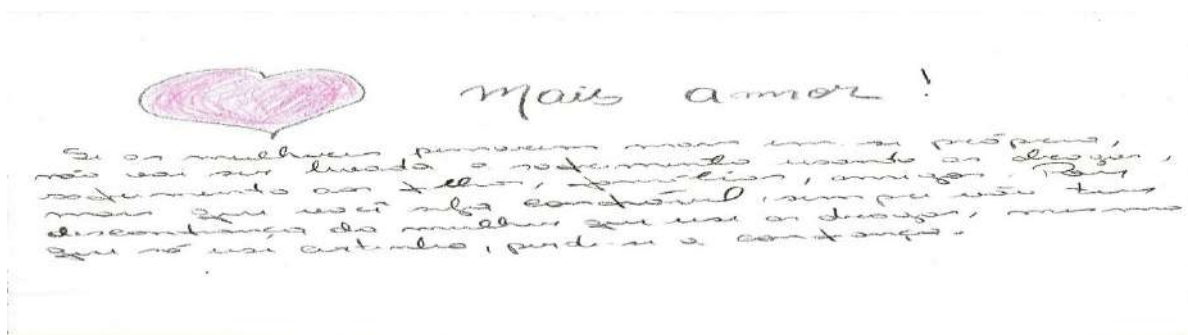 Mais amor!
Se as mulheres pensarem mais em si próprio,
não vai ser levado o sofrimento usando as drogas,
sofrimento aos filhos, famílias, amigos. Pois
mais que você seja confiável, sempre vão ter
desconfiança da mulher que usa as drogas, mesmo
que só use artinho, perde-se a confiança.